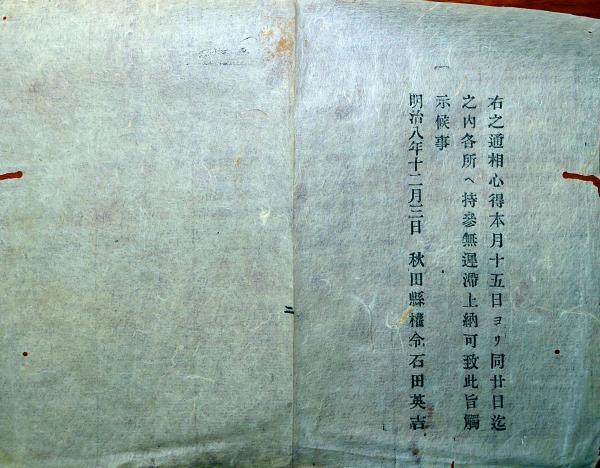 右之通相心得本月十五日ヨリ同廿日迄
之内各所ヘ持參無遅滯上納可致此旨觸
示候事
明治八年十二月三日　秋田縣權令石田英吉
二